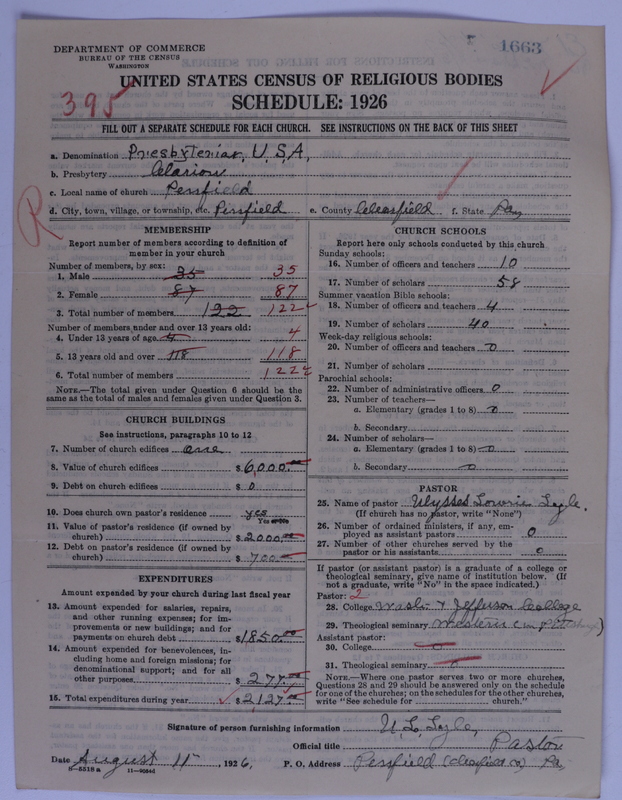 1663
DEPARTMENT OF COMMERCE
BUREAU OF THE CENSUS
WASHINGTON
UNITED STATES CENSUS OF RELIGIOUS BODIES
395
SCHEDULE: 1926
FILL OUT A SEPARATE SCHEDULE FOR EACH CHURCH. SEE INSTRUCTIONS ON THE BACK OF THIS SHEET
a. Denomination Presbyterian, U.S.A,
b. Presbytery Clarion
c. Local name of church Penfield
d. City, town, village, or township, etc. Penfield e. County Clearfield f. State Pa,
R
MEMBERSHIP
Report number of members according to definition of
member in your church
Number of members, by sex:
1. Male 35 35
2. Female 87 87
3. Total number of members 122 122
Number of members under and over 13 years old:
4. Under 13 years of age 4 4
5. 13 years old and over 118 118
6. Total number of members 122
NOTE.—The total given under Question 6 should be
same as the total of males and females given under Question 3.
CHURCH BUILDINGS
See instructions, paragraphs 10 to 12
7. Number of church edifices one
8. Value of church edifices $ 6,000.00
9. Debt on church edifices $ 0
10. Does church own pastor's residence yes
Yes or No
11. Value of pastor's residence (if owned by
church) $ 2000.00
12. Debt on pastor's residence (if owned by
church) $ 700.00
EXPENDITURES
Amount expended by your church during last fiscal year
13. Amount expended for salaries, repairs,
and other running expenses; for im-
provements or new buildings; and for
payments on church debt $ 1850.00
14. Amount expended for benevolences, in-
cluding home and foreign missions; for
denominational support; and for all
other purposes $ 277.00
15. Total expenditures during year $ 2127.00
CHURCH SCHOOLS
Report here only schools conducted by this church
Sunday schools:
16. Number of officers and teachers 10
17. Number of scholars 58
Summer vacation Bible schools:
18. Number of officers and teachers 4
19. Number of scholars 40
Week-day religious schools:
20. Number of officers and teachers 0
21. Number of scholars
Parochial schools:
22. Number of administrative officers 0
23. Number of teachers—
a. Elementary (grades 1 to 8) 0
b. Secondary
24. Number of scholars—
a. Elementary (grades 1 to 8) 0
b. Secondary 0
PASTOR
25. Name of pastor Ulysses Lowrie Lyle.
(If church has no pastor, write "None")
26. Number of ordained ministers, if any, em-
ployed as assistant pastors 0
27. Number of other churches served by the
pastor or his assistants 0
If pastor (or assistant pastor) is a graduate of a college or
theological seminary, give name of institution below. (If
not a graduate, write "No" in the space indicated.)
Pastor: 2
28. College Wash. & Jefferson College
29. Theological seminary Western (in Pittsburgh)
Assistant pastor:
30. College 0
31. Theological seminary 0
NOTE.—Where one pastor serves two or more churches,
Questions 28 and 29 should be answered only on the schedule
for one of the churches; on the schedules for the other churches,
write "See schedule for church."
Signature of person furnishing information U. L. Lyle,
Official title Pastor
Date August 11, 1926. P. O. Address Penfield (Clearfield Co) Pa,